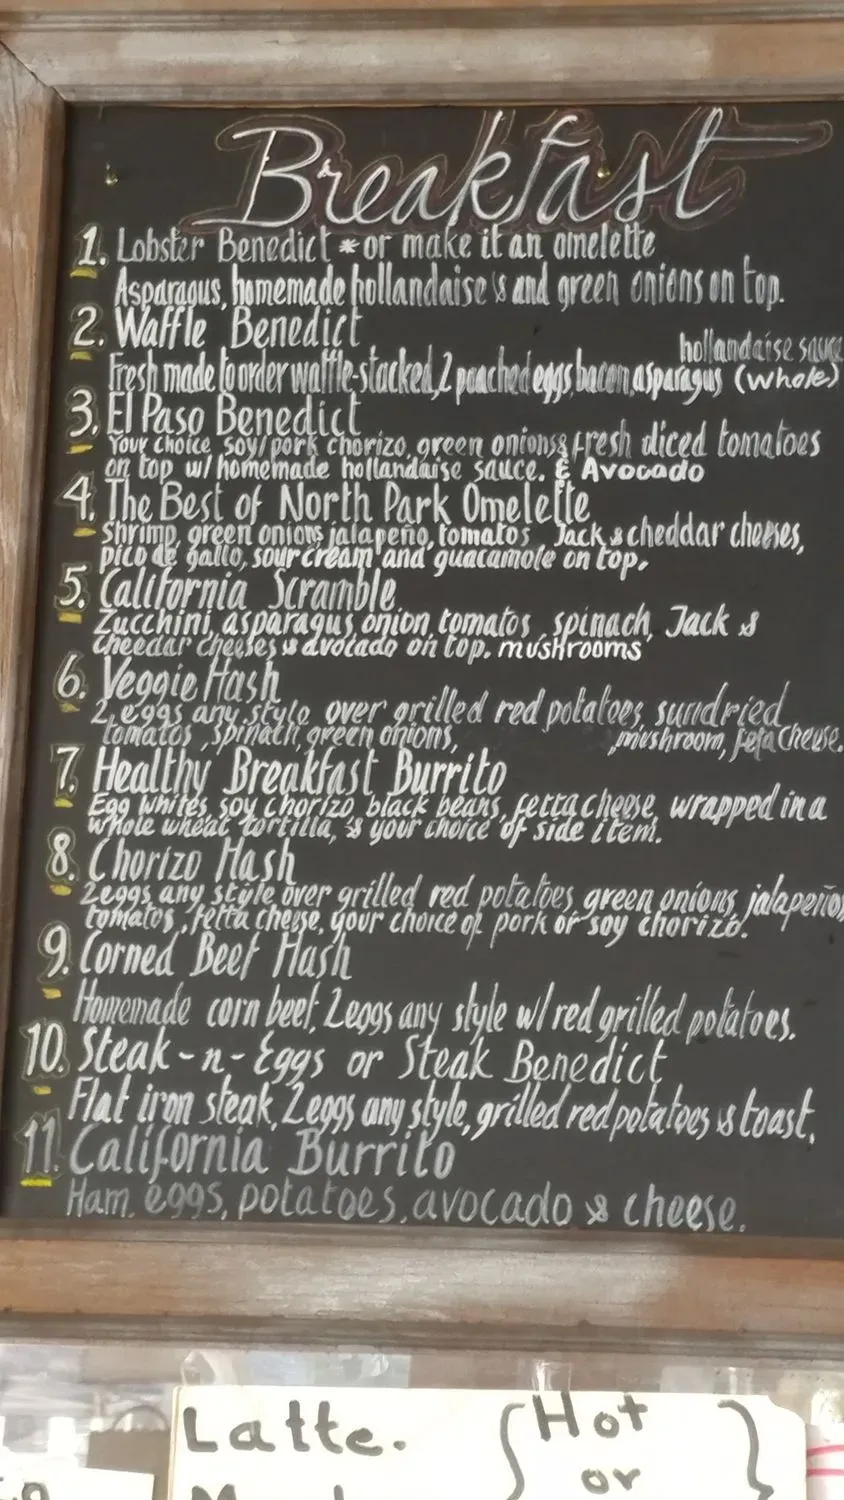 Breakfast
1. Lobster Benedict * or make it an omelette
Asparagus, homemade hollandaise & and green onions on top.
2. Waffle Benedict
hollandaise sauce
Fresh made to order waffle-stacked, 2 poached eggs, bacon, asparagus (whole)
3. El Paso Benedict
Your choice, soy/pork chorizo, green onions & fresh diced tomatoes
on top w/ homemade hollandaise sauce. & Avocado
4. The Best of North Park Omelette
Shrimp, green onions, jalapeño, tomatos, Jack & cheddar cheeses,
pico de gallo, sour cream and guacamole on top.
5. California Scramble
Zucchini, asparagus, onion, tomatos, spinach, Jack &
cheedar cheeses & avocado on top. mushrooms
6. Veggie Hash
2 eggs any style over grilled red potatoes, sundried
tomatos, spinach, green onions, mushroom, feta cheese.
7. Healthy Breakfast Burrito
Egg whites, soy chorizo, black beans, fetta cheese, wrapped in a
whole wheat tortilla, & your choice of side item.
8. Chorizo Hash
2 eggs any style over grilled red potatoes, green onions, jalapeños
tomatos, fetta cheese, your choice of pork or soy chorizo.
9. Corned Beef Hash
Homemade corn beef, 2 eggs any style w/ red grilled potatoes.
10. Steak-n-Eggs or Steak Benedict
Flat iron steak, 2 eggs any style, grilled red potatoes & toast.
11. California Burrito
Ham, eggs, potatoes, avocado & cheese.
Latte. { Hot }
or